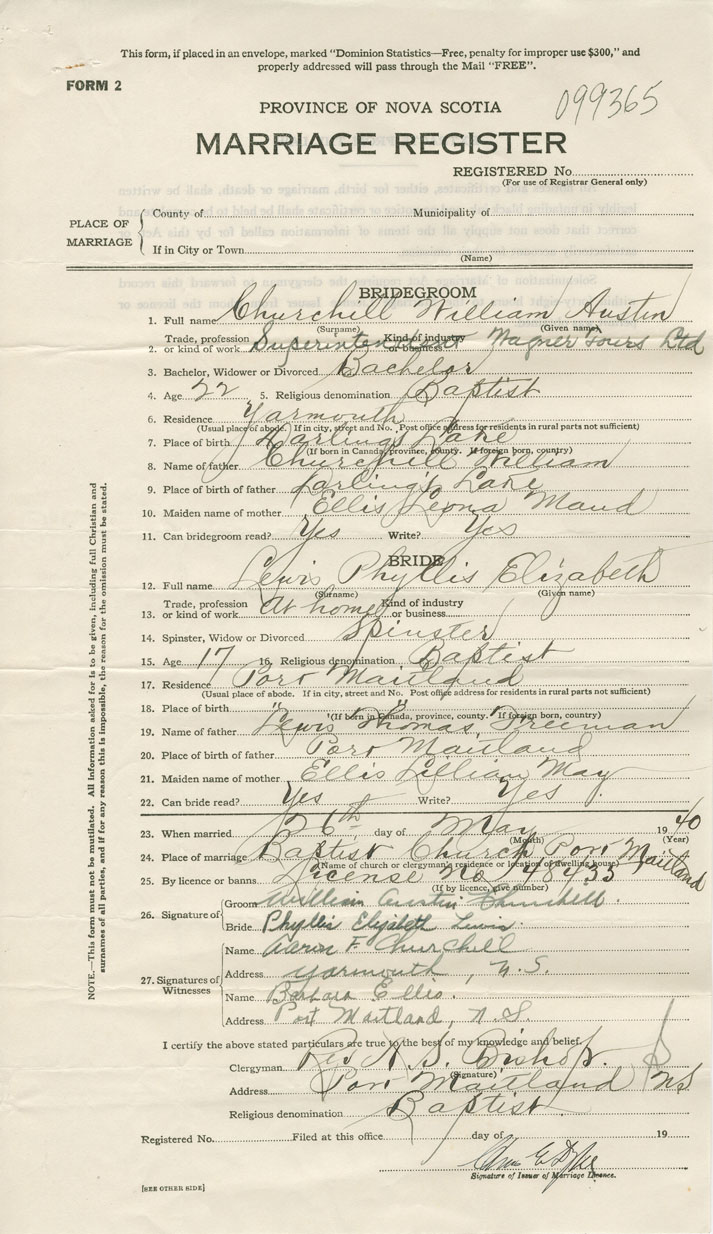 This form, if placed in an envelope, marked "Dominion Statistics—Free, penalty for improper use $300," and
properly addressed will pass through the Mail "FREE".
FORM 2
099365
PROVINCE OF NOVA SCOTIA
MARRIAGE REGISTER
REGISTERED No.
(For use of Registrar General only)
PLACE OF MARRIAGE
County of Municipality of
If in City or Town
(Name)
BRIDEGROOM
1. Full name Churchill William Austin
(Surname) (Given name)
Trade, profession Kind of industry
2. or kind of work Superintendent or business Wagner Tours Ltd
3. Bachelor, Widower or Divorced Bachelor
4. Age 22 5. Religious denomination Baptist
6. Residence Yarmouth
(Usual place of abode. If in city, street and No. Post office address for residents in rural parts not sufficient)
7. Place of birth Darlings Lake
(If born in Canada, province, county. If foreign born, country)
8. Name of father Churchill William
9. Place of birth of father Darlings Lake
10. Maiden name of mother Ellis Leona Maud
11. Can bridegroom read? Yes Write? Yes
BRIDE
12. Full name Lewis Phyllis Elizabeth
(Surname) (Given name)
Trade, profession Kind of industry
13. or kind of work At home or business
14. Spinster, Widow or Divorced Spinster
15. Age 17 16. Religious denomination Baptist
17. Residence Port Maitland
(Usual place of abode. If in city, street and No. Post office address for residents in rural parts not sufficient)
18. Place of birth " "
(If born in Canada, province, county. If foreign born, country)
19. Name of father Lewis Thomas Freeman
20. Place of birth of father Port Maitland
21. Maiden name of mother Ellis Lillian May
22. Can bride read? Yes Write? Yes
23. When married 26th day of May 1940
(Month) (Year)
24. Place of marriage Baptist Church Port Maitland
(Name of church or clergyman's residence or location of dwelling house)
25. By licence or banns License No. 148433
(If by licence, give number)
26. Signature of
Groom William Austin Churchill.
Bride Phyllis Elizabeth Lewis.
27. Signatures of Witnesses
Name Aaron F. Churchill
Address Yarmouth, N.S.
Name Barbara Ellis.
Address Port Maitland, N.S.
I certify the above stated particulars are true to the best of my knowledge and belief.
Clergyman. Rev. A. S. Bishop.
(Signature)
Address Port Maitland NS
Religious denomination Baptist
Registered No. Filed at this office day of 19
Signature of Issuer of Marriage Licence.
[SEE OTHER SIDE]
NOTE.—This form must not be mutilated. All information asked for is to be given, including full Christian and
surnames of all parties, and if for any reason this is impossible, the reason for the omission must be stated.